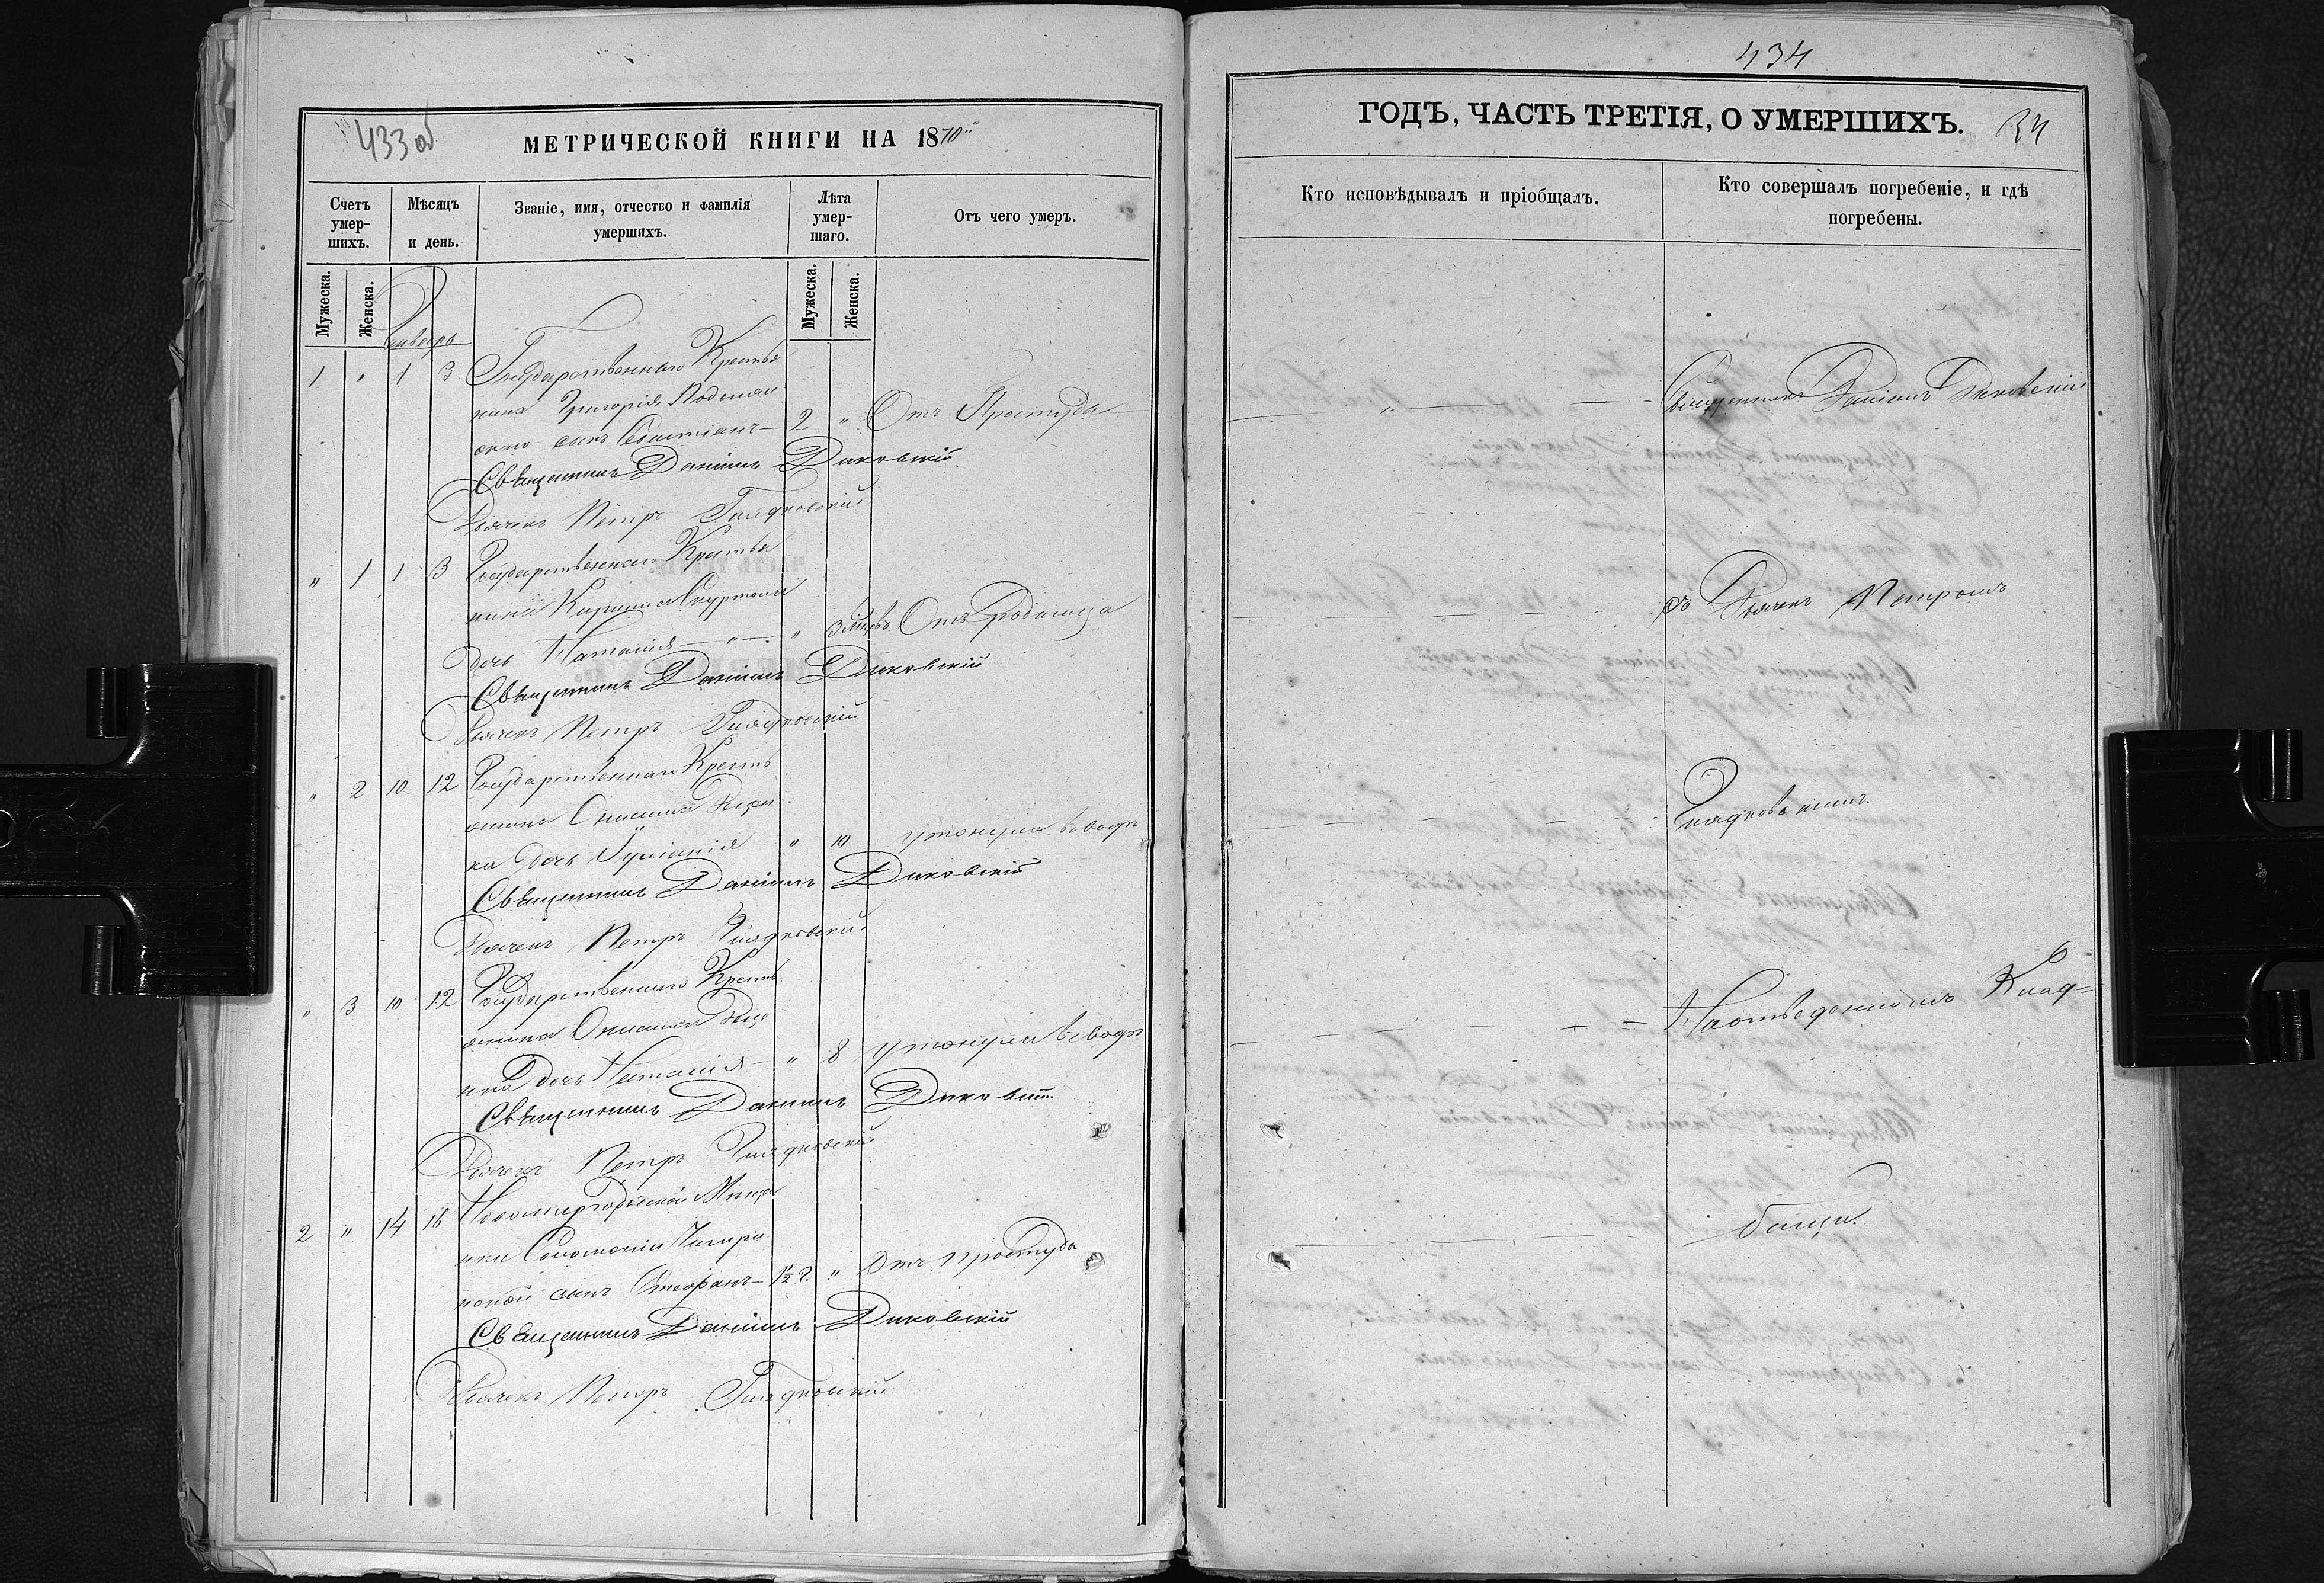 433 об
МЕТРИЧЕСКОЙ КНИГИ НА 1870й
Счетъ умер-шихъ.
Мѣсяцъ и день.
Званіе, имя, отчество и фамилія умершихъ.
Лѣта умер-шаго.
Отъ чего умеръ.
Мужеска.
Женска.
Мужеска.
Женска.
Январь
1 " 1 3 Государственнаго Крестья
нина Григорія
скаго сынъ Севастіанъ — 2 " Отъ Простуды
Священникъ Даніилъ Диковскій
Дьячекъ Петръ Гладковскій
" 1 1 3 Государственнаго Крестья
нина Кирилла
дочь Наталія — " — " 3 мѣс. Отъ Родимца
Священникъ Даніилъ Диковскій
Дьячекъ Петръ Гладковскій
" 2 10 12 Государственнаго Кресть
янина Онисима
ка дочь Іуліанія " 10 утонула въ водѣ
Священникъ Даніилъ Диковскій
Дьячекъ Петръ Гладковскій
" 3 10 12 Государственнаго Кресть
янина Онисима
дочь Наталія — " 8 утонула въ водѣ
Священникъ Даніилъ Диковскій
Дьячекъ Петръ Гладковскій
2 " 14 16 Новомиргородской Мѣща
нки Соломоніи Чигири
новой сынъ Стефанъ — 1½ г. " Отъ простуды
Священникъ Даніилъ Диковскій
Дьячекъ Петръ Гладковскій
434
ГОДЪ, ЧАСТЬ ТРЕТІЯ, О УМЕРШИХЪ.
34
Кто исповѣдывалъ и пріобщалъ.
Кто совершалъ погребеніе, и гдѣ погребены.
Священникъ Даніилъ Диковскій
съ Дьячек Петромъ
Гладковскимъ.
На отведенномъ Клад-
бищи.